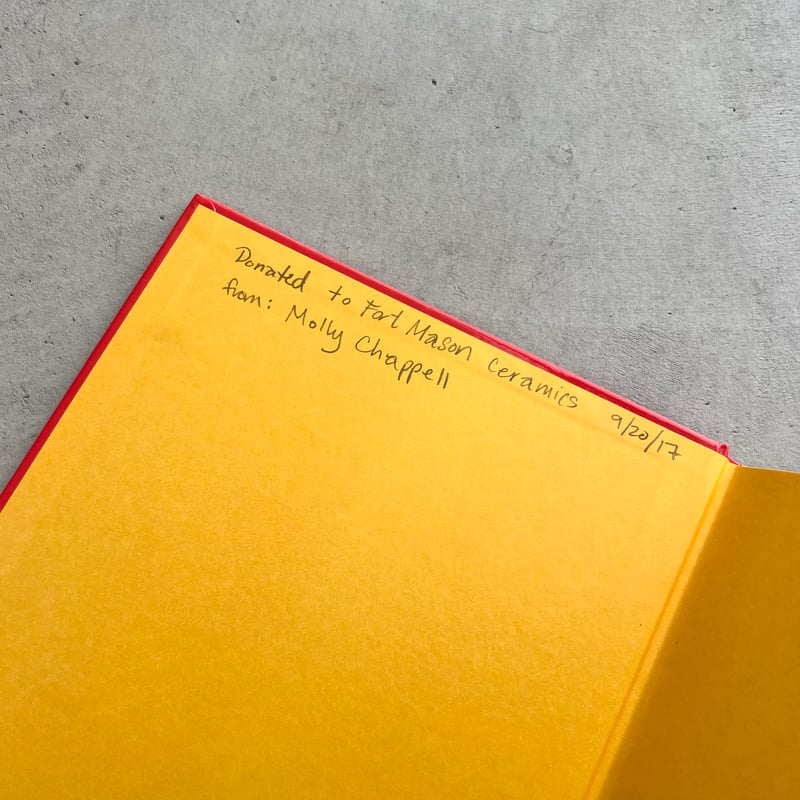 Donated to Fort Mason Ceramics 9/20/17
from: Molly Chappell